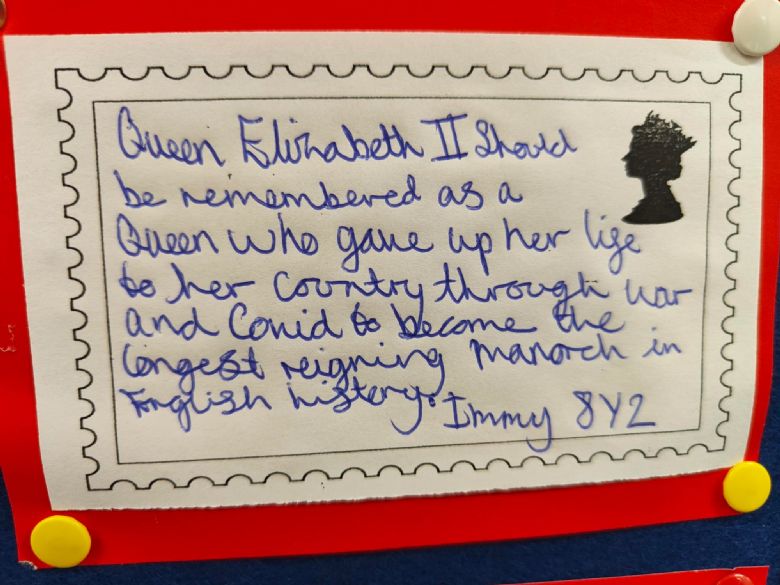 Queen Elizabeth II should
be remembered as a
Queen who gave up her life
to her country through war
and Covid to become the
longest reigning manorch in
English history.
Immy 8Y2